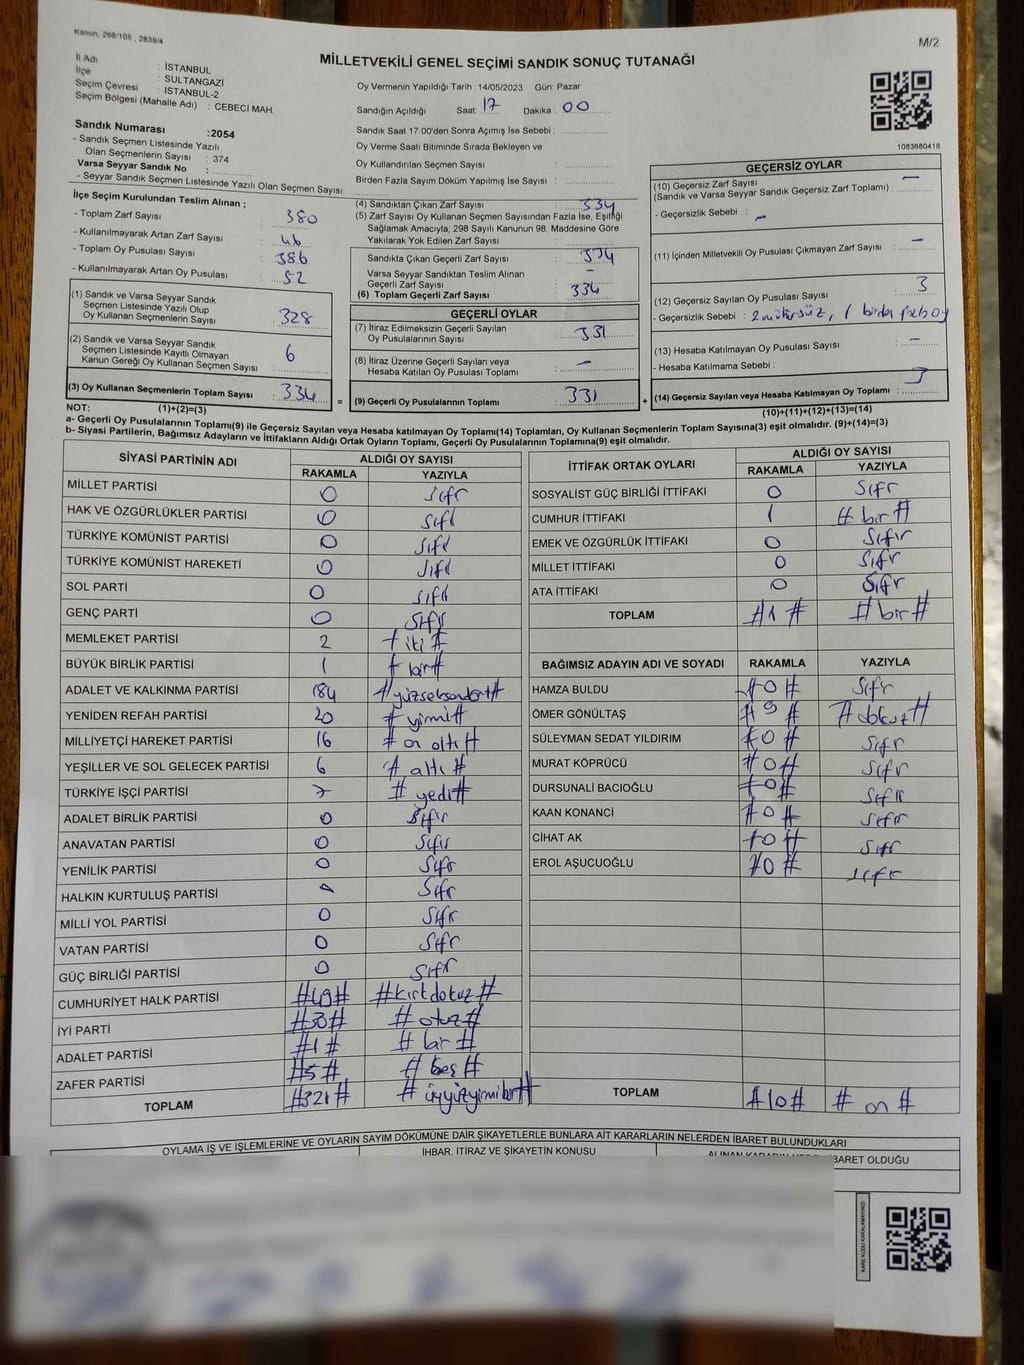 Kanun, 298/105 , 2839/4
M/2
MİLLETVEKİLİ GENEL SEÇİMİ SANDIK SONUÇ TUTANAĞI
İl Adı : İSTANBUL
İlçe : SULTANGAZİ
Seçim Çevresi : İSTANBUL-2
Seçim Bölgesi (Mahalle Adı) : CEBECİ MAH.
Sandık Numarası :2054
- Sandık Seçmen Listesinde Yazılı
Olan Seçmenlerin Sayısı : 374
Varsa Seyyar Sandık No :
- Seyyar Sandık Seçmen Listesinde Yazılı Olan Seçmen Sayısı:
Oy Vermenin Yapıldığı Tarih :14/05/2023 Gün: Pazar
Sandığın Açıldığı Saat: 17 Dakika : 00
Sandık Saat 17:00'den Sonra Açılmış İse Sebebi :
Oy Verme Saati Bitiminde Sırada Bekleyen ve
Oy Kullandırılan Seçmen Sayısı :
Birden Fazla Sayım Döküm Yapılmış İse Sayısı :
1083680418
İlçe Seçim Kurulundan Teslim Alınan ;
- Toplam Zarf Sayısı : 380
- Kullanılmayarak Artan Zarf Sayısı : 46
- Toplam Oy Pusulası Sayısı : 386
- Kullanılmayarak Artan Oy Pusulası : 52
(1) Sandık ve Varsa Seyyar Sandık
Seçmen Listesinde Yazılı Olup
Oy Kullanan Seçmenlerin Sayısı : 328
(2) Sandık ve Varsa Seyyar Sandık
Seçmen Listesinde Kayıtlı Olmayan
Kanun Gereği Oy Kullanan Seçmen Sayısı : 6
(3) Oy Kullanan Seçmenlerin Toplam Sayısı : 334
(1)+(2)=(3)
(4) Sandıktan Çıkan Zarf Sayısı : 334
(5) Zarf Sayısı Oy Kullanan Seçmen Sayısından Fazla İse, Eşitliği
Sağlamak Amacıyla; 298 Sayılı Kanunun 98. Maddesine Göre
Yakılarak Yok Edilen Zarf Sayısı :
Sandıkta Çıkan Geçerli Zarf Sayısı : 334
Varsa Seyyar Sandıktan Teslim Alınan
Geçerli Zarf Sayısı : –
(6) Toplam Geçerli Zarf Sayısı : 334
GEÇERLİ OYLAR
(7) İtiraz Edilmeksizin Geçerli Sayılan
Oy Pusulalarının Sayısı : 331
(8) İtiraz Üzerine Geçerli Sayılan veya
Hesaba Katılan Oy Pusulası Toplamı : –
= (9) Geçerli Oy Pusulalarının Toplamı : 331
GEÇERSİZ OYLAR
(10) Geçersiz Zarf Sayısı : –
(Sandık ve Varsa Seyyar Sandık Geçersiz Zarf Toplamı)
- Geçersizlik Sebebi : –
(11) İçinden Milletvekili Oy Pusulası Çıkmayan Zarf Sayısı : –
(12) Geçersiz Sayılan Oy Pusulası Sayısı : 3
- Geçersizlik Sebebi : 2 mühürsüz, 1 birden fazla oy
(13) Hesaba Katılmayan Oy Pusulası Sayısı : –
- Hesaba Katılmama Sebebi :
+ (14) Geçersiz Sayılan veya Hesaba Katılmayan Oy Toplamı : 3
(10)+(11)+(12)+(13)=(14)
NOT:
a- Geçerli Oy Pusulalarının Toplamı(9) ile Geçersiz Sayılan veya Hesaba katılmayan Oy Toplamı(14) Toplamları, Oy Kullanan Seçmenlerin Toplam Sayısına(3) eşit olmalıdır. (9)+(14)=(3)
b- Siyasi Partilerin, Bağımsız Adayların ve İttifakların Aldığı Ortak Oyların Toplamı, Geçerli Oy Pusulalarının Toplamına(9) eşit olmalıdır.
SİYASİ PARTİNİN ADI ALDIĞI OY SAYISI
RAKAMLA YAZIYLA
MİLLET PARTİSİ 0 sıfr
HAK VE ÖZGÜRLÜKLER PARTİSİ 0 sıfı
TÜRKİYE KOMÜNİST PARTİSİ 0 sıfı
TÜRKİYE KOMÜNİST HAREKETİ 0 sıfı
SOL PARTİ 0 sıfı
GENÇ PARTİ 0 sıfı
MEMLEKET PARTİSİ 2 # iki #
BÜYÜK BİRLİK PARTİSİ 1 # bir #
ADALET VE KALKINMA PARTİSİ 184 # yüzseksendört #
YENİDEN REFAH PARTİSİ 20 # yirmi #
MİLLİYETÇİ HAREKET PARTİSİ 16 # on altı #
YEŞİLLER VE SOL GELECEK PARTİSİ 6 # altı #
TÜRKİYE İŞÇİ PARTİSİ 7 # yedi #
ADALET BİRLİK PARTİSİ 0 sıfır
ANAVATAN PARTİSİ 0 sıfır
YENİLİK PARTİSİ 0 sıfr
HALKIN KURTULUŞ PARTİSİ 0 sıfr
MİLLİ YOL PARTİSİ 0 sıfr
VATAN PARTİSİ 0 sıfr
GÜÇ BİRLİĞİ PARTİSİ 0 sıfır
CUMHURİYET HALK PARTİSİ #49# #kırkdokuz#
İYİ PARTİ #30# # otuz #
ADALET PARTİSİ #1# # bir #
ZAFER PARTİSİ #5# # beş #
TOPLAM #321# # üçyüzyirmibir#
İTTİFAK ORTAK OYLARI ALDIĞI OY SAYISI
RAKAMLA YAZIYLA
SOSYALİST GÜÇ BİRLİĞİ İTTİFAKI 0 sıfr
CUMHUR İTTİFAKI 1 # bir #
EMEK VE ÖZGÜRLÜK İTTİFAKI 0 sıfır
MİLLET İTTİFAKI 0 sıfr
ATA İTTİFAKI 0 sıfr
TOPLAM #1# # bir #
BAĞIMSIZ ADAYIN ADI VE SOYADI RAKAMLA YAZIYLA
HAMZA BULDU #0# sıfr
ÖMER GÖNÜLTAŞ #9# # dokuz #
SÜLEYMAN SEDAT YILDIRIM #0# sıfr
MURAT KÖPRÜCÜ #0# sıfr
DURSUNALİ BACIOĞLU #0# sıfır
KAAN KONANCİ #0# sıfır
CİHAT AK #0# sıfr
EROL AŞUCUOĞLU #0# sıfr
TOPLAM #10# # on #
OYLAMA İŞ VE İŞLEMLERİNE VE OYLARIN SAYIM DÖKÜMÜNE DAİR ŞİKAYETLERLE BUNLARA AİT KARARLARIN NELERDEN İBARET BULUNDUKLARI
İHBAR, İTİRAZ VE ŞİKAYETİN KONUSU